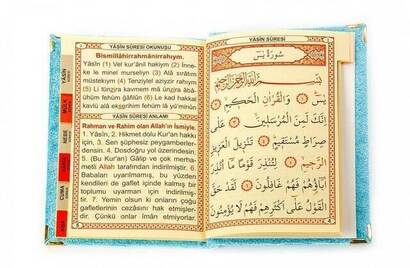 YÂSÎN SÛRESİ OKUNUŞU
Bismillâhirrahmânirrahıym.
Yâsîn (1) Vel kur'ânil hakiym (2) İnne-
ke le minel murseliyn (3) Alâ sırâtım
müstekıym (4) Tenziylel aziyzir rahıym
(5) Li tünzira kavmem mâ ünzira âbâ-
ühüm fehüm ğâfilûn (6) Le kad hakkal
kavlü alâ ekserihim fehüm lâ yü'minûn
YÂSÎN SÛRESİ ANLAMI
Rahman ve Rahim olan Allah'ın İsmiyle.
1. Yâsîn, 2. Hikmet dolu Kur'an hakkı
için, 3. Sen şüphesiz peygamberler-
densin. 4. Dosdoğru yol üzerindesin.
5. (Bu Kur'an) Gâlip ve çok merha-
metli Allah tarafından indirilmiştir. 6.
Babaları uyarılmamış, bu yüzden
kendileri de gaflet içinde kalmış bir
toplumu uyarman için indirilmiş-
tir. 7. Yemin olsun ki onların çoğu
gafletlerinin cezasını hak etmişler-
dir. Çünkü onlar îmân etmiyorlar.
YÂSÎN
MÜLK
NEBE
CUMA
YÂSÎN SÛRESİ
سُورَةُ يٰسٓ
بِسْمِ اللّٰهِ الرَّحْمٰنِ الرَّحِيمِ
يٰسٓ ﴿١﴾ وَالْقُرْاٰنِ الْحَكِيمِ ﴿٢﴾
اِنَّكَ لَمِنَ الْمُرْسَلِينَ ﴿٣﴾ عَلٰى
صِرَاطٍ مُسْتَقِيمٍ ﴿٤﴾ تَنْزِيلَ الْعَزِيزِ
الرَّحِيمِ ﴿٥﴾ لِتُنْذِرَ قَوْمًا مَٓا اُنْذِرَ
اٰبَٓاؤُ۬هُمْ فَهُمْ غَافِلُونَ ﴿٦﴾ لَقَدْ حَقَّ
الْقَوْلُ عَلٰٓى اَكْثَرِهِمْ فَهُمْ لَا يُؤْمِنُونَ